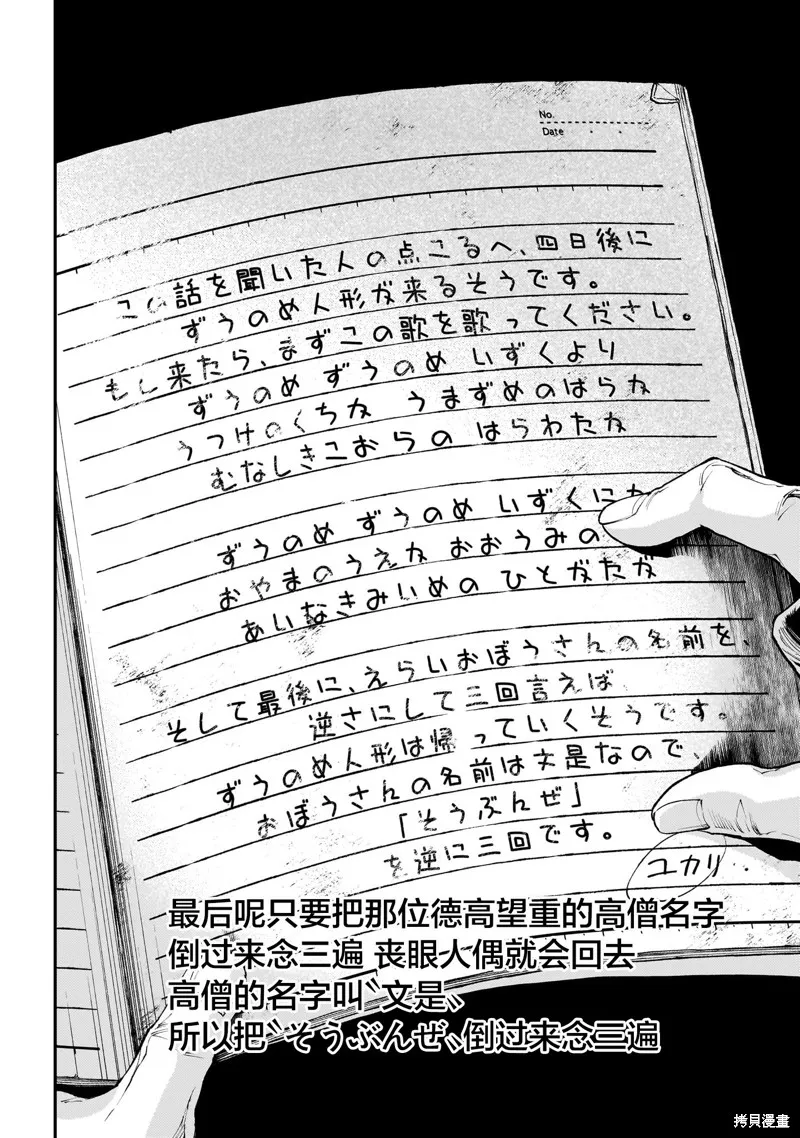 No.
Date
この話を聞いた人の点こるへ、四日後に
ずうのめ人形が来るそうです。
もし来たら、まずこの歌を歌ってください。
ずうのめ ずうのめ いずくより
うつけのくちか うまずめのはらか
むなしきこおらの はらわたか
ずうのめ ずうのめ いずくにか
おやまのうえか おおうみの
あいなきみいめの ひとがたが
そして最後に、えらいおぼうさんの名前を、
逆さにして三回言えば
ずうのめ人形は帰っていくそうです。
おぼうさんの名前は文是なので、
「そうぶんぜ」
を逆に三回です。
ユカリ
最后呢只要把那位德高望重的高僧名字
倒过来念三遍 丧眼人偶就会回去
高僧的名字叫〝文是〟
所以把〝そうぶんぜ〟倒过来念三遍
拷貝漫畫